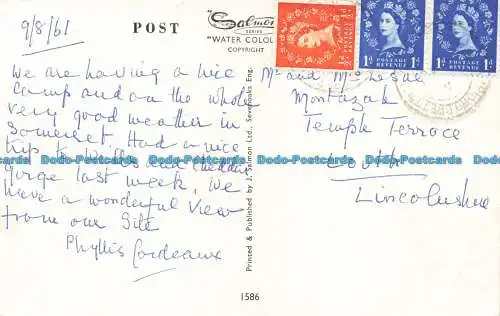 9/8/61
POST
"Salmon
SERIES
"WATER COLOU
COPYRIGHT
POSTAGE REVENUE
1D
POSTAGE REVENUE
1D
We are having a nice
camp and on the whole
very good weather in
Somerset. Had a nice
trip to Wells and Cheddar
gorge last week. We
have a wonderful view
from our site
Phyllis Cordeaux
Printed & Published by J. Salmon Ltd., Sevenoaks Eng.
Mr and Mrs
Temple Terrace
Louth
Lincolnshire
1586
Todo-Postcards Todo-Postcards Todo-Postcards Todo-Postcards